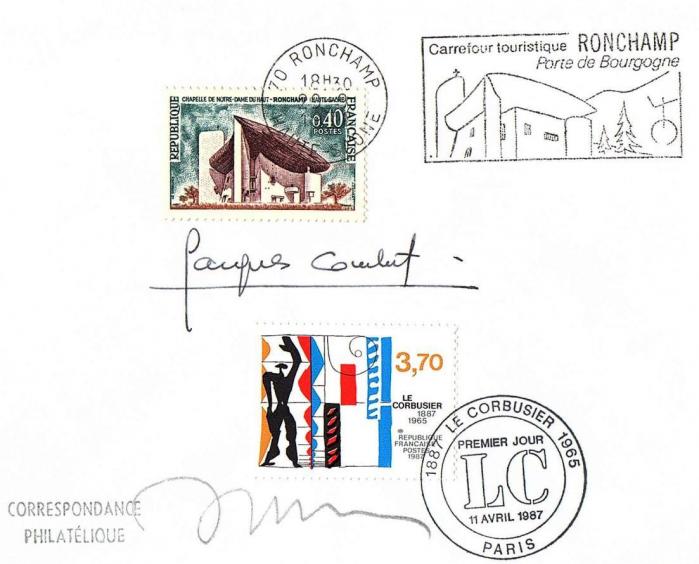 70 RONCHAMP
18H30
HAUTE-SAÔNE
Carrefour touristique RONCHAMP
Porte de Bourgogne
CHAPELLE DE NOTRE-DAME DU HAUT - RONCHAMP (HAUTE-SAÔNE)
REPUBLIQUE
FRANÇAISE
0,40
POSTES
Jacques Combet
3,70
LE
CORBUSIER
1887
1965
REPUBLIQUE
FRANÇAISE
POSTES
1987
1887 LE CORBUSIER 1965
PREMIER JOUR
LC
11 AVRIL 1987
PARIS
CORRESPONDANCE
PHILATÉLIQUE